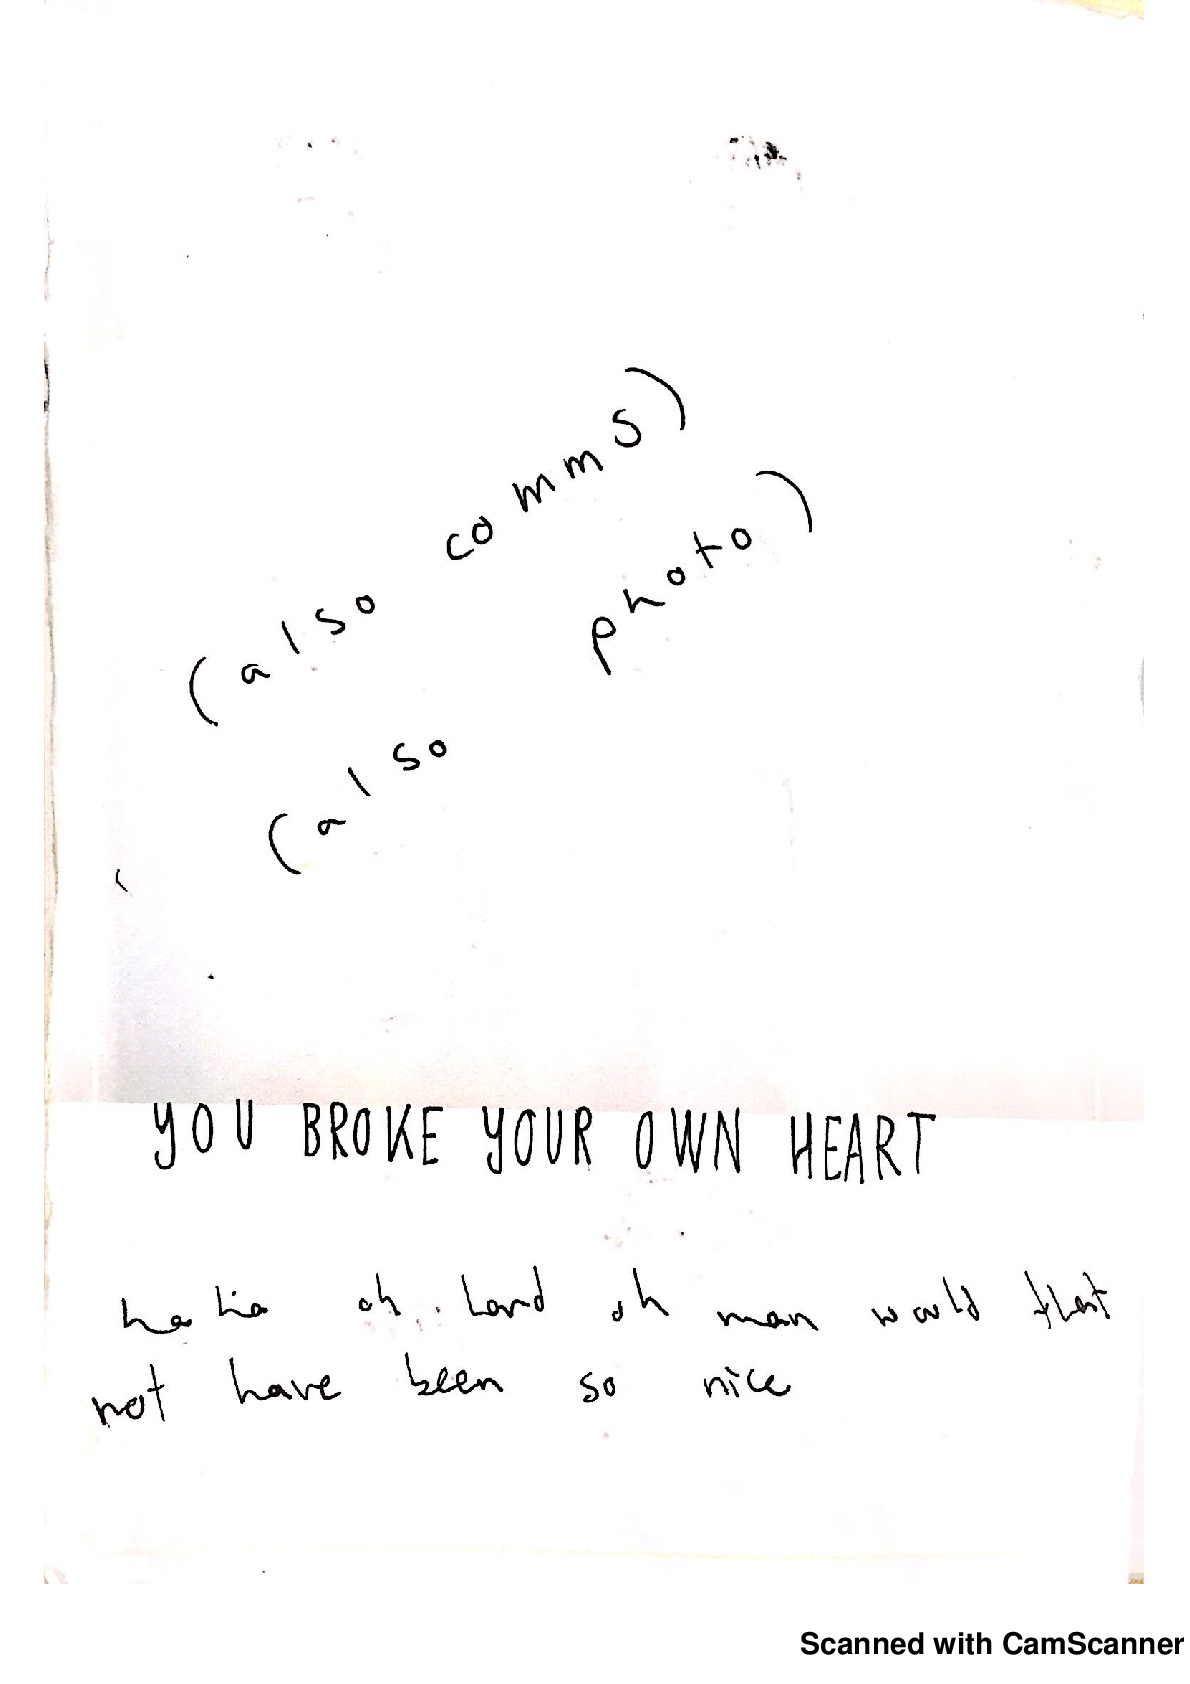 (also comms)
(also photo)
YOU BROKE YOUR OWN HEART
ha ha oh lord oh man would that
not have been so nice
Scanned with CamScanner